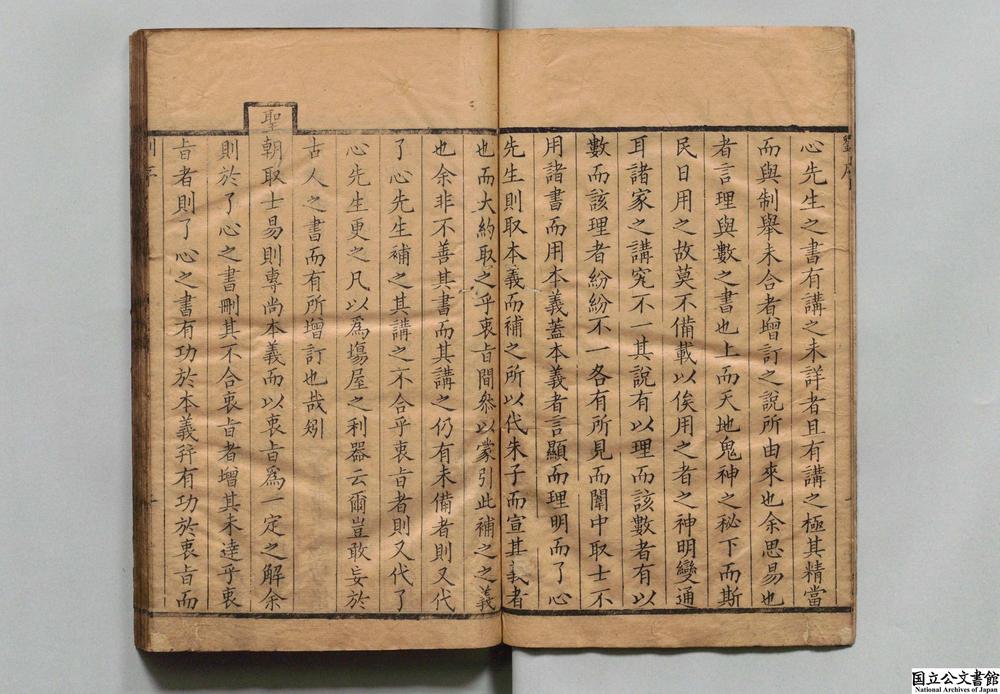 心先生之書有講之未詳者且有講之極其精當
而與制舉未合者增訂之說所由來也余思易也
者言理與數之書也上而天地鬼神之秘下而斯
民日用之故莫不備載以俟用之者之神明變通
耳諸家之講究不一其說有以理而該數者有以
數而該理者紛紛不一各有所見而闈中取士不
用諸書而用本義蓋本義者言顯而理明而了心
先生則取本義而補之所以代朱子而宣其義者
也而大約取之乎衷旨間叅以蒙引此補之之義
也余非不善其書而其講之仍有未備者則又代
了心先生補之其講之不合乎衷旨者則又代了
心先生更之凡以爲塲屋之利器云爾豈敢妄於
古人之書而有所增訂也哉矧
聖朝取士易則專尚本義而以衷旨爲一定之解余
則於了心之書刪其不合衷旨者增其未達乎衷
旨者則了心之書有功於本義幷有功於衷旨而
国立公文書館
National Archives of Japan